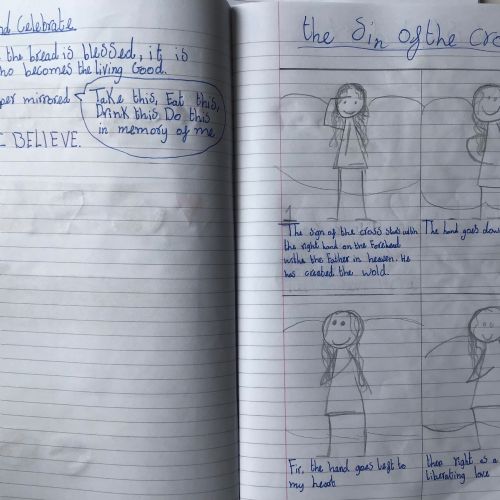 nd Celebrate
the bread is blessed, it is
ho becomes the living Good.
per mirrored
Take this, Eat this,
Drink this, Do this
in memory of me
BELIEVE.
the Sin of the Cro
1
The sign of the cross starts with
the right hand on the Forehead
withe the Father in heaven. He
has created the wold.
The hand goes dow
Fir, the hand goes left to
my heart
then right is a
liberating love